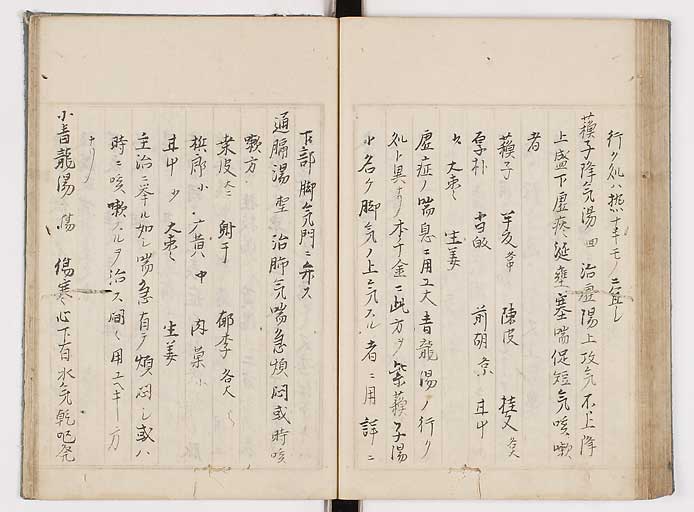 行ク処ハ熱十キモノニ宜シ
蘓子降气湯 四 治虚陽上攻气不上降
上盛下虚痰涎壅塞喘促短气咳嗽
者
蘓子 半夏 陳皮 桂 各大
厚朴 當皈 前胡 京 甘中
大棗 生姜
虚症ノ喘息ニ用ユ大青龍湯ノ行ク
処ト異ナリ本千金ニ此方ヲ紫蘓子湯
ト名ク脚气ノ上气スル者ニ用詳ニ
下部脚气門ニ弁ス
通膈湯 治肺气喘急煩悶或時咳
嗽方
桑皮 射干 郁李 各大
梹郎 小 大黄 中 肉菓 小
甘中 少 大棗 生姜
主治ニ挙ル如ク喘急有テ煩悶シ或ハ
時ニ咳嗽スルヲ治ス間々用ユヘキ方
ナリ
小青龍湯 傷寒心下有水气乾呕発